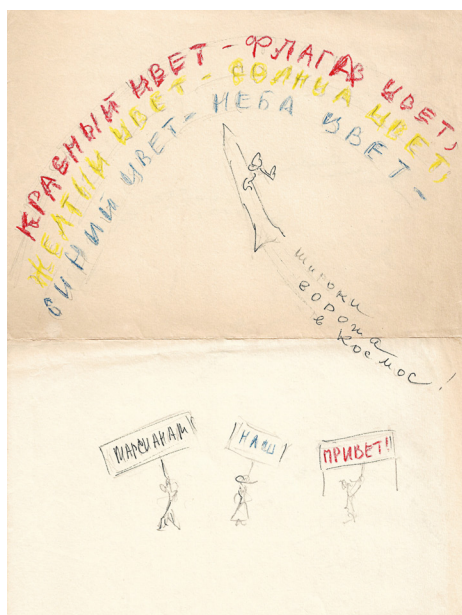 КРАСНЫЙ ЦВЕТ - ФЛАГАВ ЦВЕТ,
ЖЕЛТЫЙ ЦВЕТ - СОЛНЦА ЦВЕТ,
СИНИЙ ЦВЕТ - НЕБА ЦВЕТ -
широки
в космос!
МАРСИАНАМ
НАШ
ПРИВЕТ!!